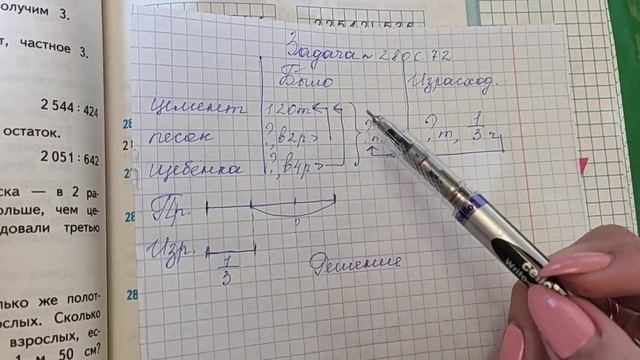 олучим 3.
т, частное 3.
2 544 : 424
остаток.
2 051 : 642
ска — в 2 ра-
ольше, чем це-
довали третью
лько же полот-
рослых. Сколько
взрослых, ес-
1 м 50 см?
28
28
28
Задача № 280 с. 72
Было Израсход.
Цемент 120т
песок ?, в 2 р >
Щебенка ?, в 4 р >
?, т, 1/3 ч.
Пр.
?
Изр.
1/3
Решение